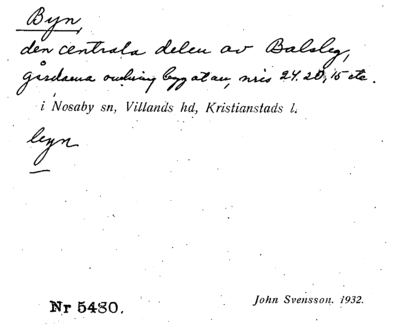 Byn,
den centrala delen av Balsby,
gårdarna omkring bygatan, nris 24. 20, 15 etc.
i Nosaby sn, Villands hd, Kristianstads l.
byn
Nr 5480.
John Svensson. 1932.